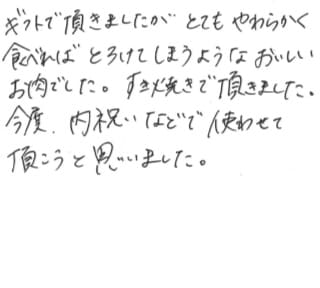 ギフトで頂きましたが とてもやわらかく
食べれば とろけてしまうようなおいしい
お肉でした。すき焼きで頂きました。
今度、内祝いなどで使わせて
頂こうと思いました。